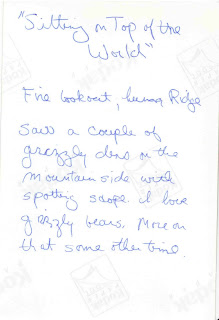 "Sitting on Top of the
World"
Fire lookout, Numa Ridge
Saw a couple of
grizzly dens on the
mountain side with
spotting scope. I love
grizzly bears. More on
that some other time.